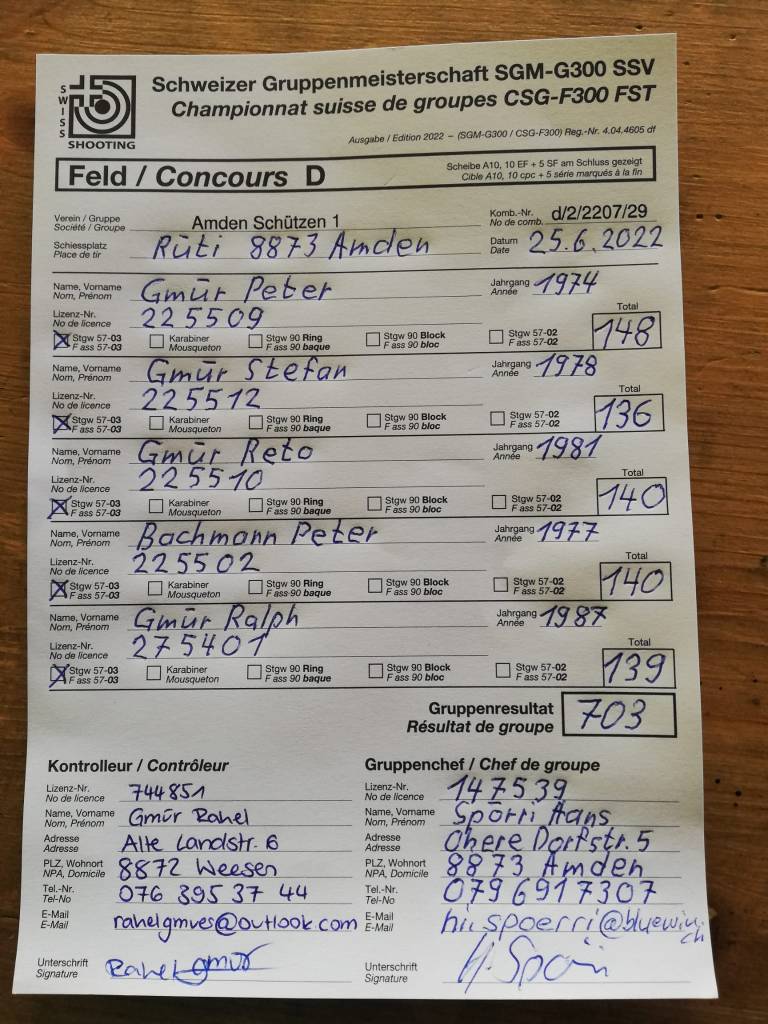 SWISS
SHOOTING
Schweizer Gruppenmeisterschaft SGM-G300 SSV
Championnat suisse de groupes CSG-F300 FST
Ausgabe / Edition 2022 – (SGM-G300 / CSG-F300) Reg.-Nr. 4.04.4605 df
Feld / Concours D
Scheibe A10, 10 EF + 5 SF am Schluss gezeigt
Cible A10, 10 cpc + 5 série marqués à la fin
Verein / Gruppe
Société / Groupe
Amden Schützen 1
Komb.-Nr.
No de comb.
d/2/2207/29
Schiessplatz
Place de tir
Rüti 8873 Amden
Datum
Date
25.6.2022
Name, Vorname
Nom, Prénom
Gmür Peter
Jahrgang
Année
1974
Lizenz-Nr.
No de licence
225509
Total
148
Stgw 57-03
F ass 57-03
Karabiner
Mousqueton
Stgw 90 Ring
F ass 90 baque
Stgw 90 Block
F ass 90 bloc
Stgw 57-02
F ass 57-02
Name, Vorname
Nom, Prénom
Gmür Stefan
Jahrgang
Année
1978
Lizenz-Nr.
No de licence
225512
Total
136
Stgw 57-03
F ass 57-03
Karabiner
Mousqueton
Stgw 90 Ring
F ass 90 baque
Stgw 90 Block
F ass 90 bloc
Stgw 57-02
F ass 57-02
Name, Vorname
Nom, Prénom
Gmür Reto
Jahrgang
Année
1981
Lizenz-Nr.
No de licence
225510
Total
140
Stgw 57-03
F ass 57-03
Karabiner
Mousqueton
Stgw 90 Ring
F ass 90 baque
Stgw 90 Block
F ass 90 bloc
Stgw 57-02
F ass 57-02
Name, Vorname
Nom, Prénom
Bachmann Peter
Jahrgang
Année
1977
Lizenz-Nr.
No de licence
225502
Total
140
Stgw 57-03
F ass 57-03
Karabiner
Mousqueton
Stgw 90 Ring
F ass 90 baque
Stgw 90 Block
F ass 90 bloc
Stgw 57-02
F ass 57-02
Name, Vorname
Nom, Prénom
Gmür Ralph
Jahrgang
Année
1987
Lizenz-Nr.
No de licence
275401
Total
139
Stgw 57-03
F ass 57-03
Karabiner
Mousqueton
Stgw 90 Ring
F ass 90 baque
Stgw 90 Block
F ass 90 bloc
Stgw 57-02
F ass 57-02
Gruppenresultat
Résultat de groupe
703
Kontrolleur / Contrôleur
Lizenz-Nr.
No de licence
744851
Name, Vorname
Nom, Prénom
Gmür Rahel
Adresse
Adresse
Alte Landstr. 6
PLZ, Wohnort
NPA, Domicile
8872 Weesen
Tel.-Nr.
Tel-No
076 395 37 44
E-Mail
E-Mail
rahelgmues@outlook.com
Unterschrift
Signature
Rahel gmür
Gruppenchef / Chef de groupe
Lizenz-Nr.
No de licence
147539
Name, Vorname
Nom, Prénom
Spörri Hans
Adresse
Adresse
Obere Dorfstr. 5
PLZ, Wohnort
NPA, Domicile
8873 Amden
Tel.-Nr.
Tel-No
079 691 7307
E-Mail
E-Mail
hi.spoerri@bluewin.
ch
Unterschrift
Signature
H. Spörri